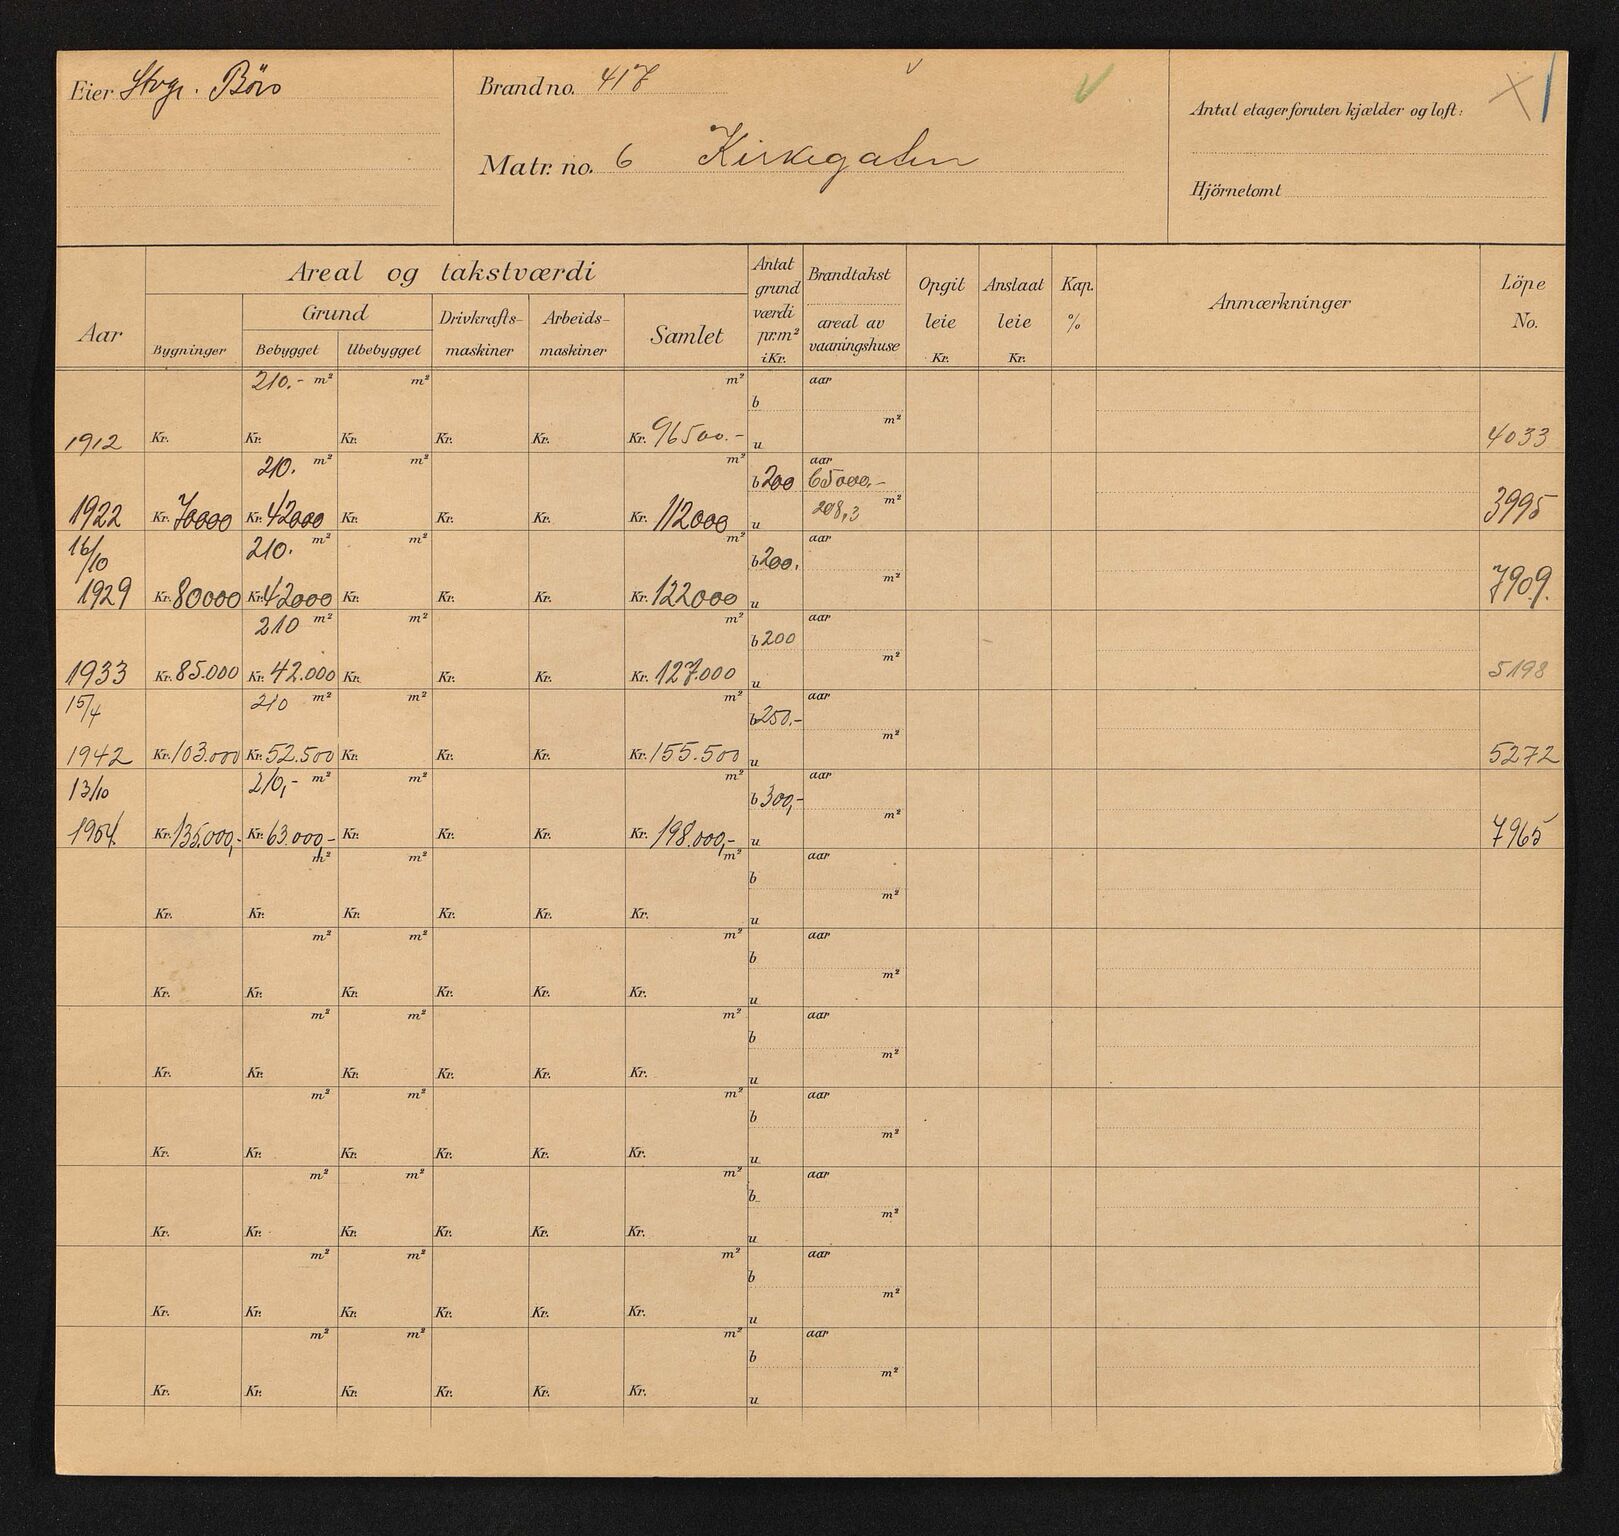 Eier Stvgr. Börs
Brand no. 417
Matr. no. 6 Kirkegaten
Antal etager foruten kjælder og loft:
Hjörnetomt
Aar
Areal og takstværdi
Bygninger
Grund
Bebygget
Ubebygget
Drivkrafts-
maskiner
Arbeids-
maskiner
Samlet
Antat
grund
værdi
pr. m²
i Kr.
Brandtakst
areal av
vaaningshuse
Opgit
leie
Kr.
Anslaat
leie
Kr.
Kap.
%
Anmærkninger
Löpe
No.
210.- m² m² m² aar
b
m²
1912 Kr. Kr. Kr. Kr. Kr. Kr. 96500.- u 4033
210. m² m² m² aar
b 200 65000.-
208,3 m²
1922 Kr. 70000 Kr. 42000 Kr. Kr. Kr. Kr. 112000 u 3995
16/10 210. m² m² m² aar
b 200.
m²
1929 Kr. 80000 Kr. 42000 Kr. Kr. Kr. Kr. 122000 u 7909.
210 m² m² m² aar
b 200
m²
1933 Kr. 85.000 Kr. 42.000 Kr. Kr. Kr. Kr. 127.000 u 5198
15/4 210 m² m² m² aar
b 250.-
m²
1942 Kr. 103.000 Kr. 52.500 Kr. Kr. Kr. Kr. 155.500 u 5272
13/10 210,- m² m² m² aar
b 300,-
m²
1954 Kr. 135.000,- Kr. 63.000,- Kr. Kr. Kr. Kr. 198.000,- u 7965
m² m² m² aar
b
m²
Kr. Kr. Kr. Kr. Kr. Kr. u
m² m² m² aar
b
m²
Kr. Kr. Kr. Kr. Kr. Kr. u
m² m² m² aar
b
m²
Kr. Kr. Kr. Kr. Kr. Kr. u
m² m² m² aar
b
m²
Kr. Kr. Kr. Kr. Kr. Kr. u
m² m² m² aar
b
m²
Kr. Kr. Kr. Kr. Kr. Kr. u
m² m² m² aar
b
m²
Kr. Kr. Kr. Kr. Kr. Kr. u
m² m² m² aar
b
m²
Kr. Kr. Kr. Kr. Kr. Kr. u